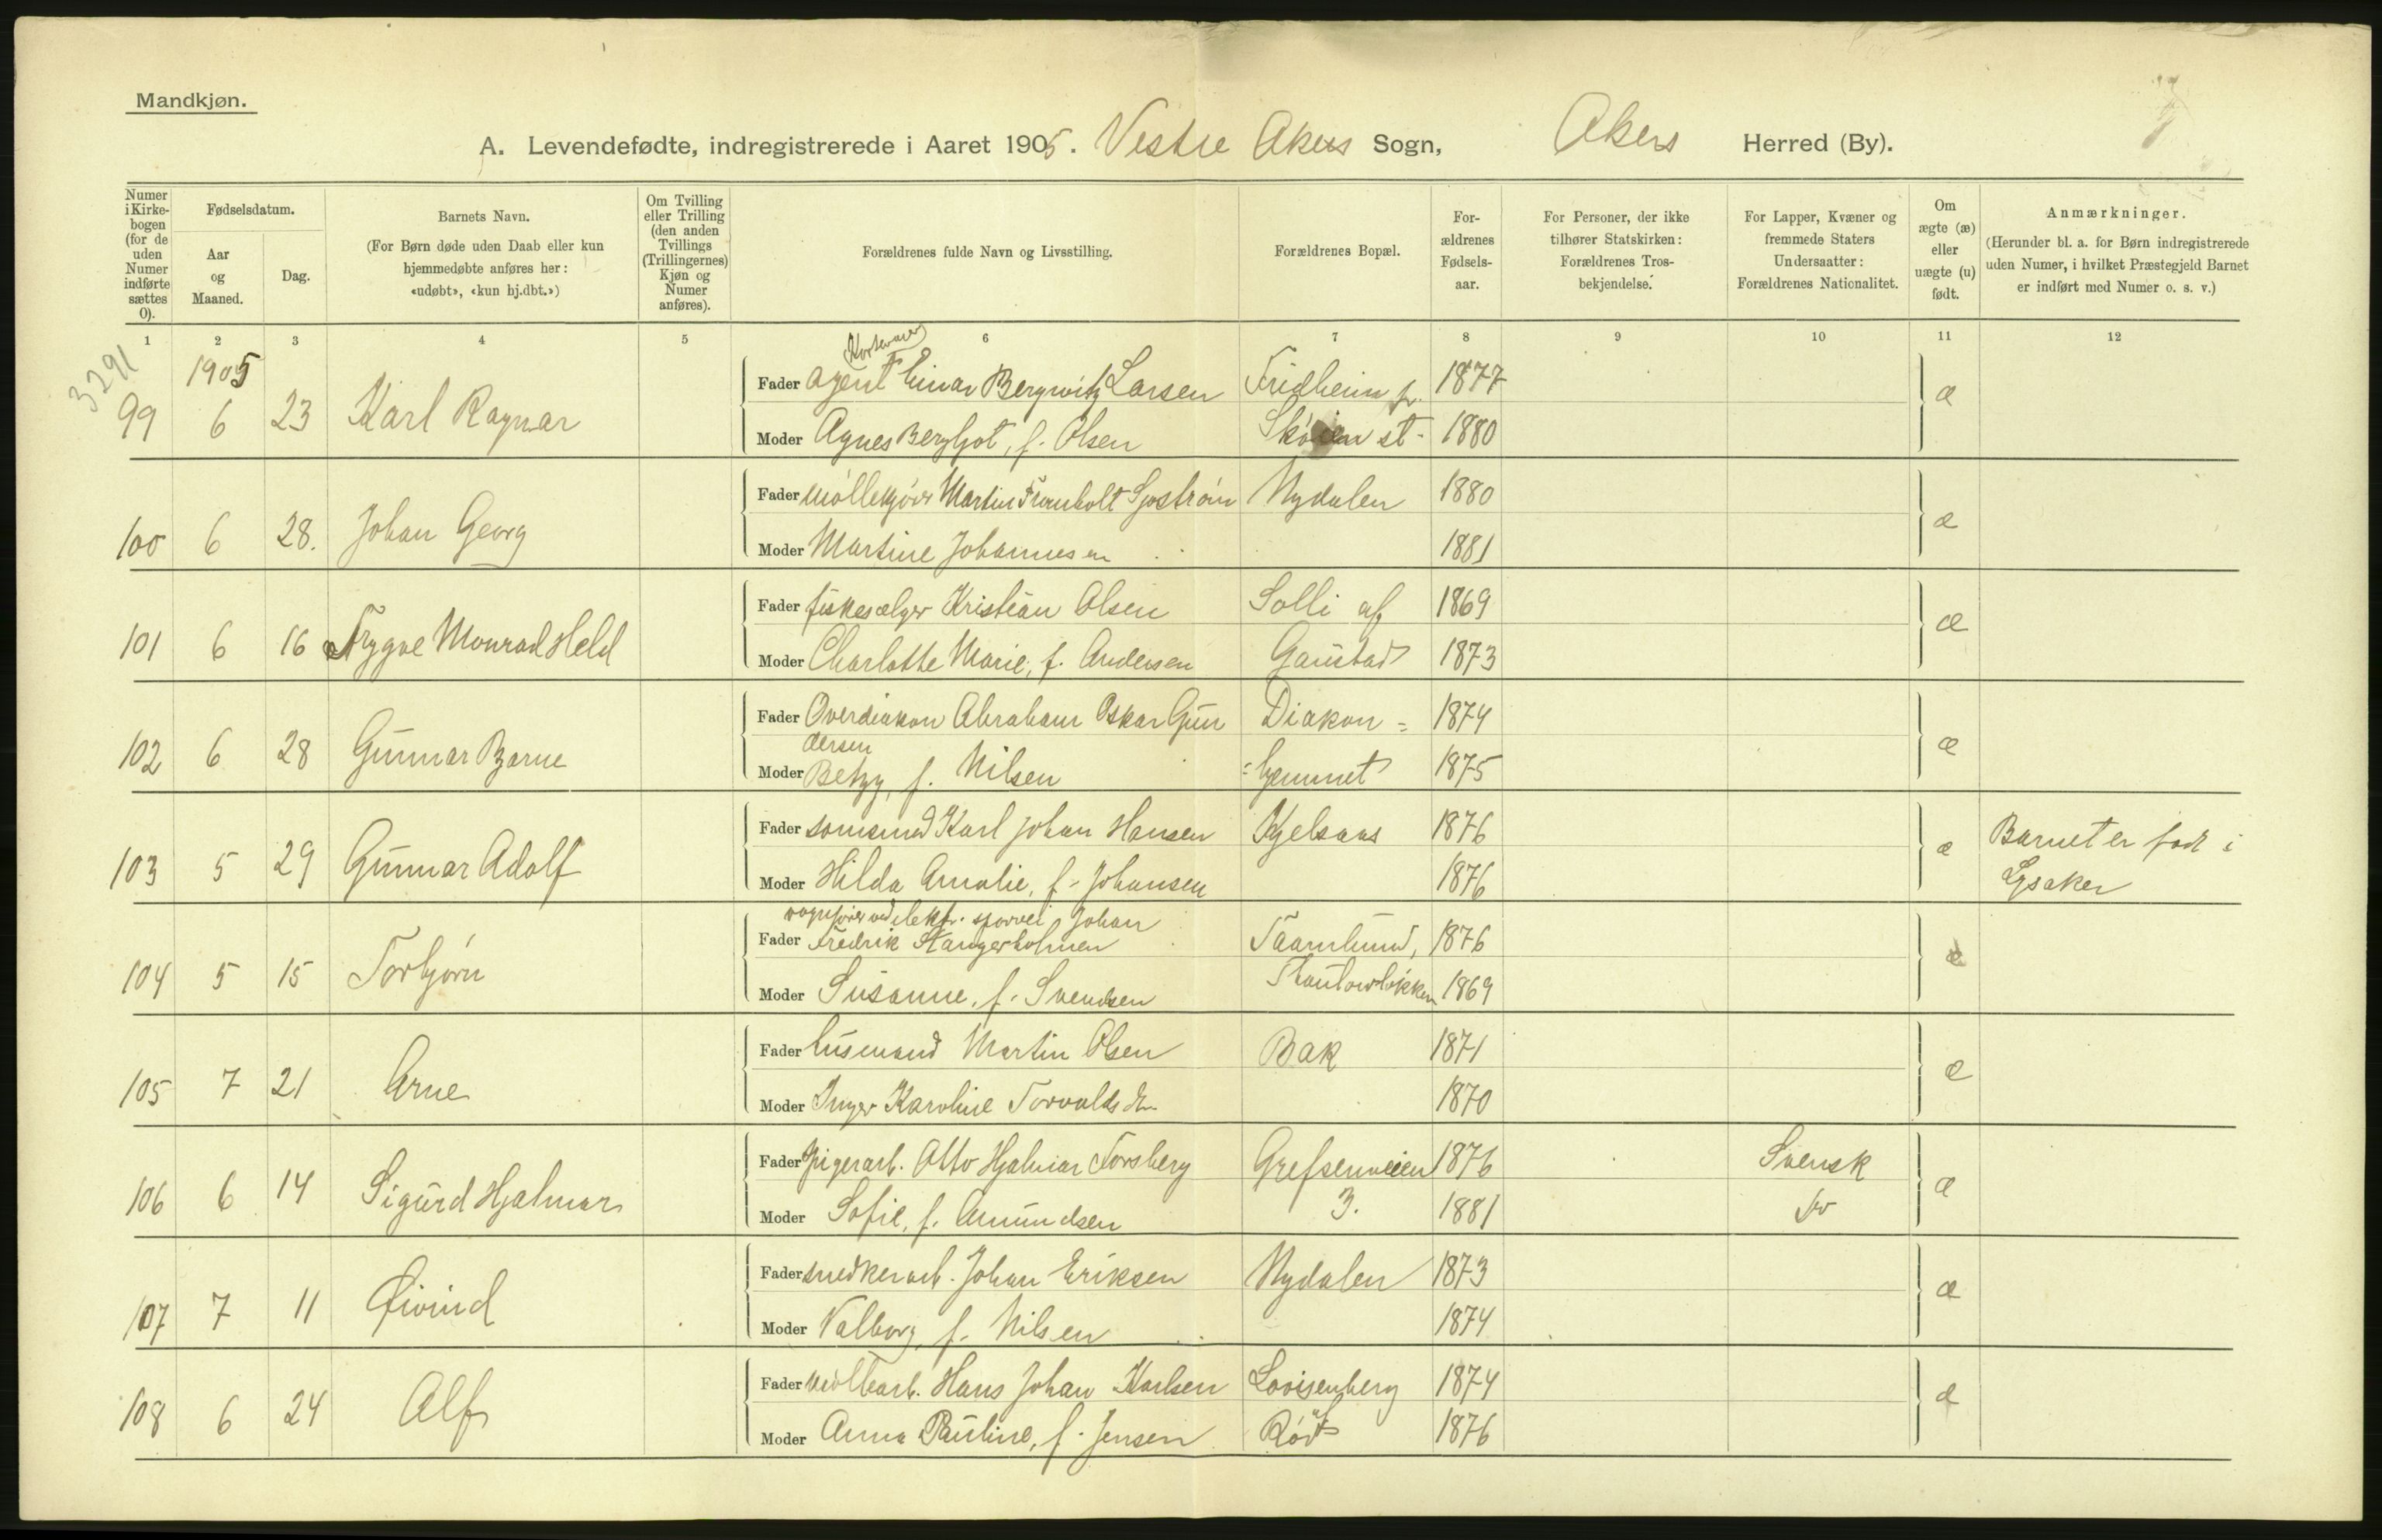 Mandkjøn.
A. Levendefødte, indregistrerede i Aaret 1905. Vestre Akers Sogn, Akers Herred (By).
Numer i Kirke-bogen (for de uden Numer indførte sættes 0).
Fødselsdatum.
Aar og Maaned.
Dag.
Barnets Navn.
(For Børn døde uden Daab eller kun hjemmedøbte anføres her: «udøbt», «kun hj.dbt.»)
Om Tvilling eller Trilling (den anden Tvillings (Trillingernes) Kjøn og Numer anføres).
Forældrenes fulde Navn og Livsstilling.
Forældrenes Bopæl.
For-ældrenes Fødsels-aar.
For Personer, der ikke tilhører Statskirken: Forældrenes Tros-bekjendelse.
For Lapper, Kvæner og fremmede Staters Undersaatter: Forældrenes Nationalitet.
Om ægte (æ) eller uægte (u) født.
Anmærkninger.
(Herunder bl. a. for Børn indregistrerede uden Numer, i hvilket Præstegjeld Barnet er indført med Numer o. s. v.)
1 2 3 4 5 6 7 8 9 10 11 12
3291
1905
99 6 23 Karl Ragnar
Fader agent Einar Bergwitz Larsen Fridheim pr. 1877 æ
Moder Agnes Bergljot, f. Olsen Skøien st. 1880
100 6 28. Johan Georg
Fader Martin Sjøstrøm Nydalen 1880 æ
Moder Martine Johannesen 1881
101 6 16 Trygve Monrad Held
Fader fiskesælger Kristian Olsen Solli af 1869 æ
Moder Charlotte Marie, f. Andersen Gaustad 1873
102 6 28 Gunnar Bjarne
Fader Overdiakon Abraham Oskar Gun Diakon= 1874 æ
dersen
Moder Betzy, f. Nilsen =hjemmet 1875
103 5 29 Gunnar Adolf
Fader Karl Johan Hansen Kjelsaas 1876 æ Barnet er født i
Moder Hilda Amalie, f. Johansen 1876 Lysaker
104 5 15 Torbjørn
vognfører ved elektr. sporvei Johan
Fader Fredrik Stangerholmen 1876 æ
Moder Susanne, f. Svendsen 1869
105 7 21 Arne
Fader husmand Martin Olsen Bak 1871 æ
Moder Inger Karoline Torvaldsdtr 1870
106 6 14 Sigurd Hjalmar
Fader Otto Hjalmar Forsberg Grefsenveien 1876 Svensk æ
Moder Sofie, f. Amundsen 3. 1881 do
107 7 11 Øivind
Fader snedkerarb. Johan Eriksen Nydalen 1873 æ
Moder Valborg, f. Nilsen 1874
108 6 24 Alf
Fader Hans Johan Karlsen Lovisenberg 1874 æ
Moder Anna Pauline, f. Jensen 1876